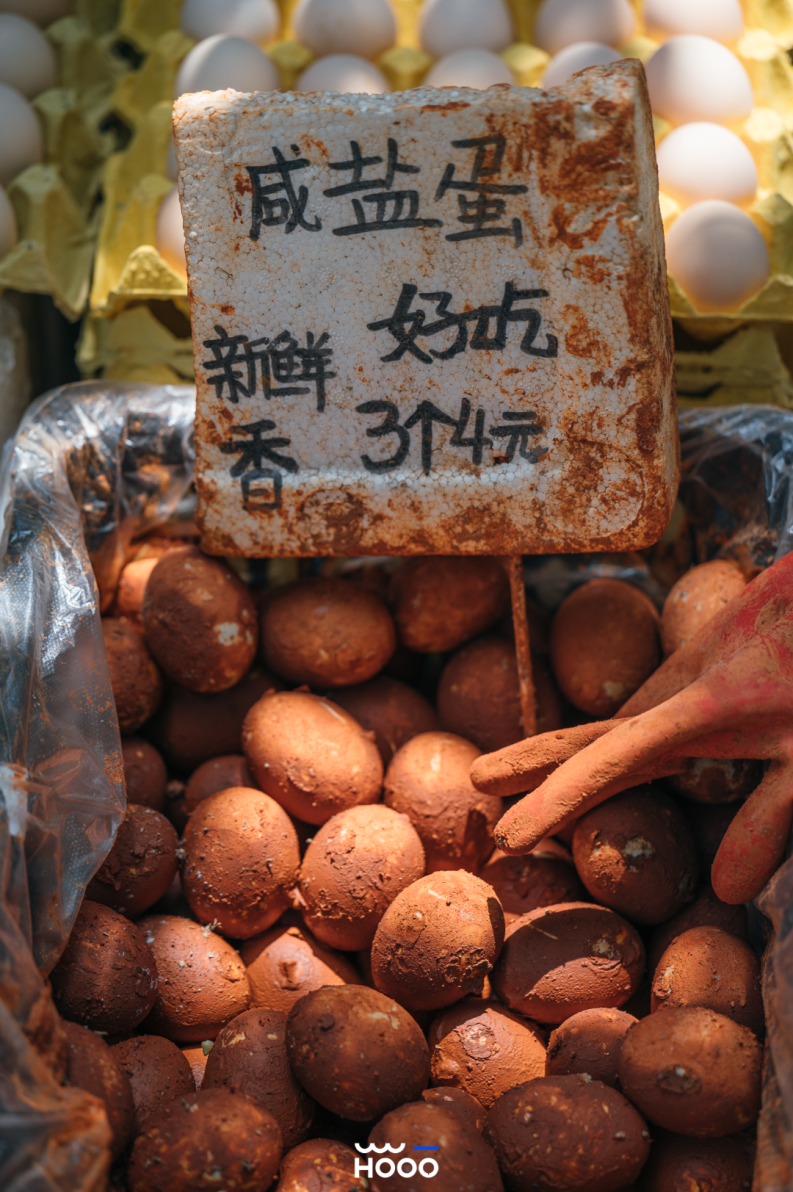 咸盐蛋
好吃
新鲜
香
3个4元
HOOO